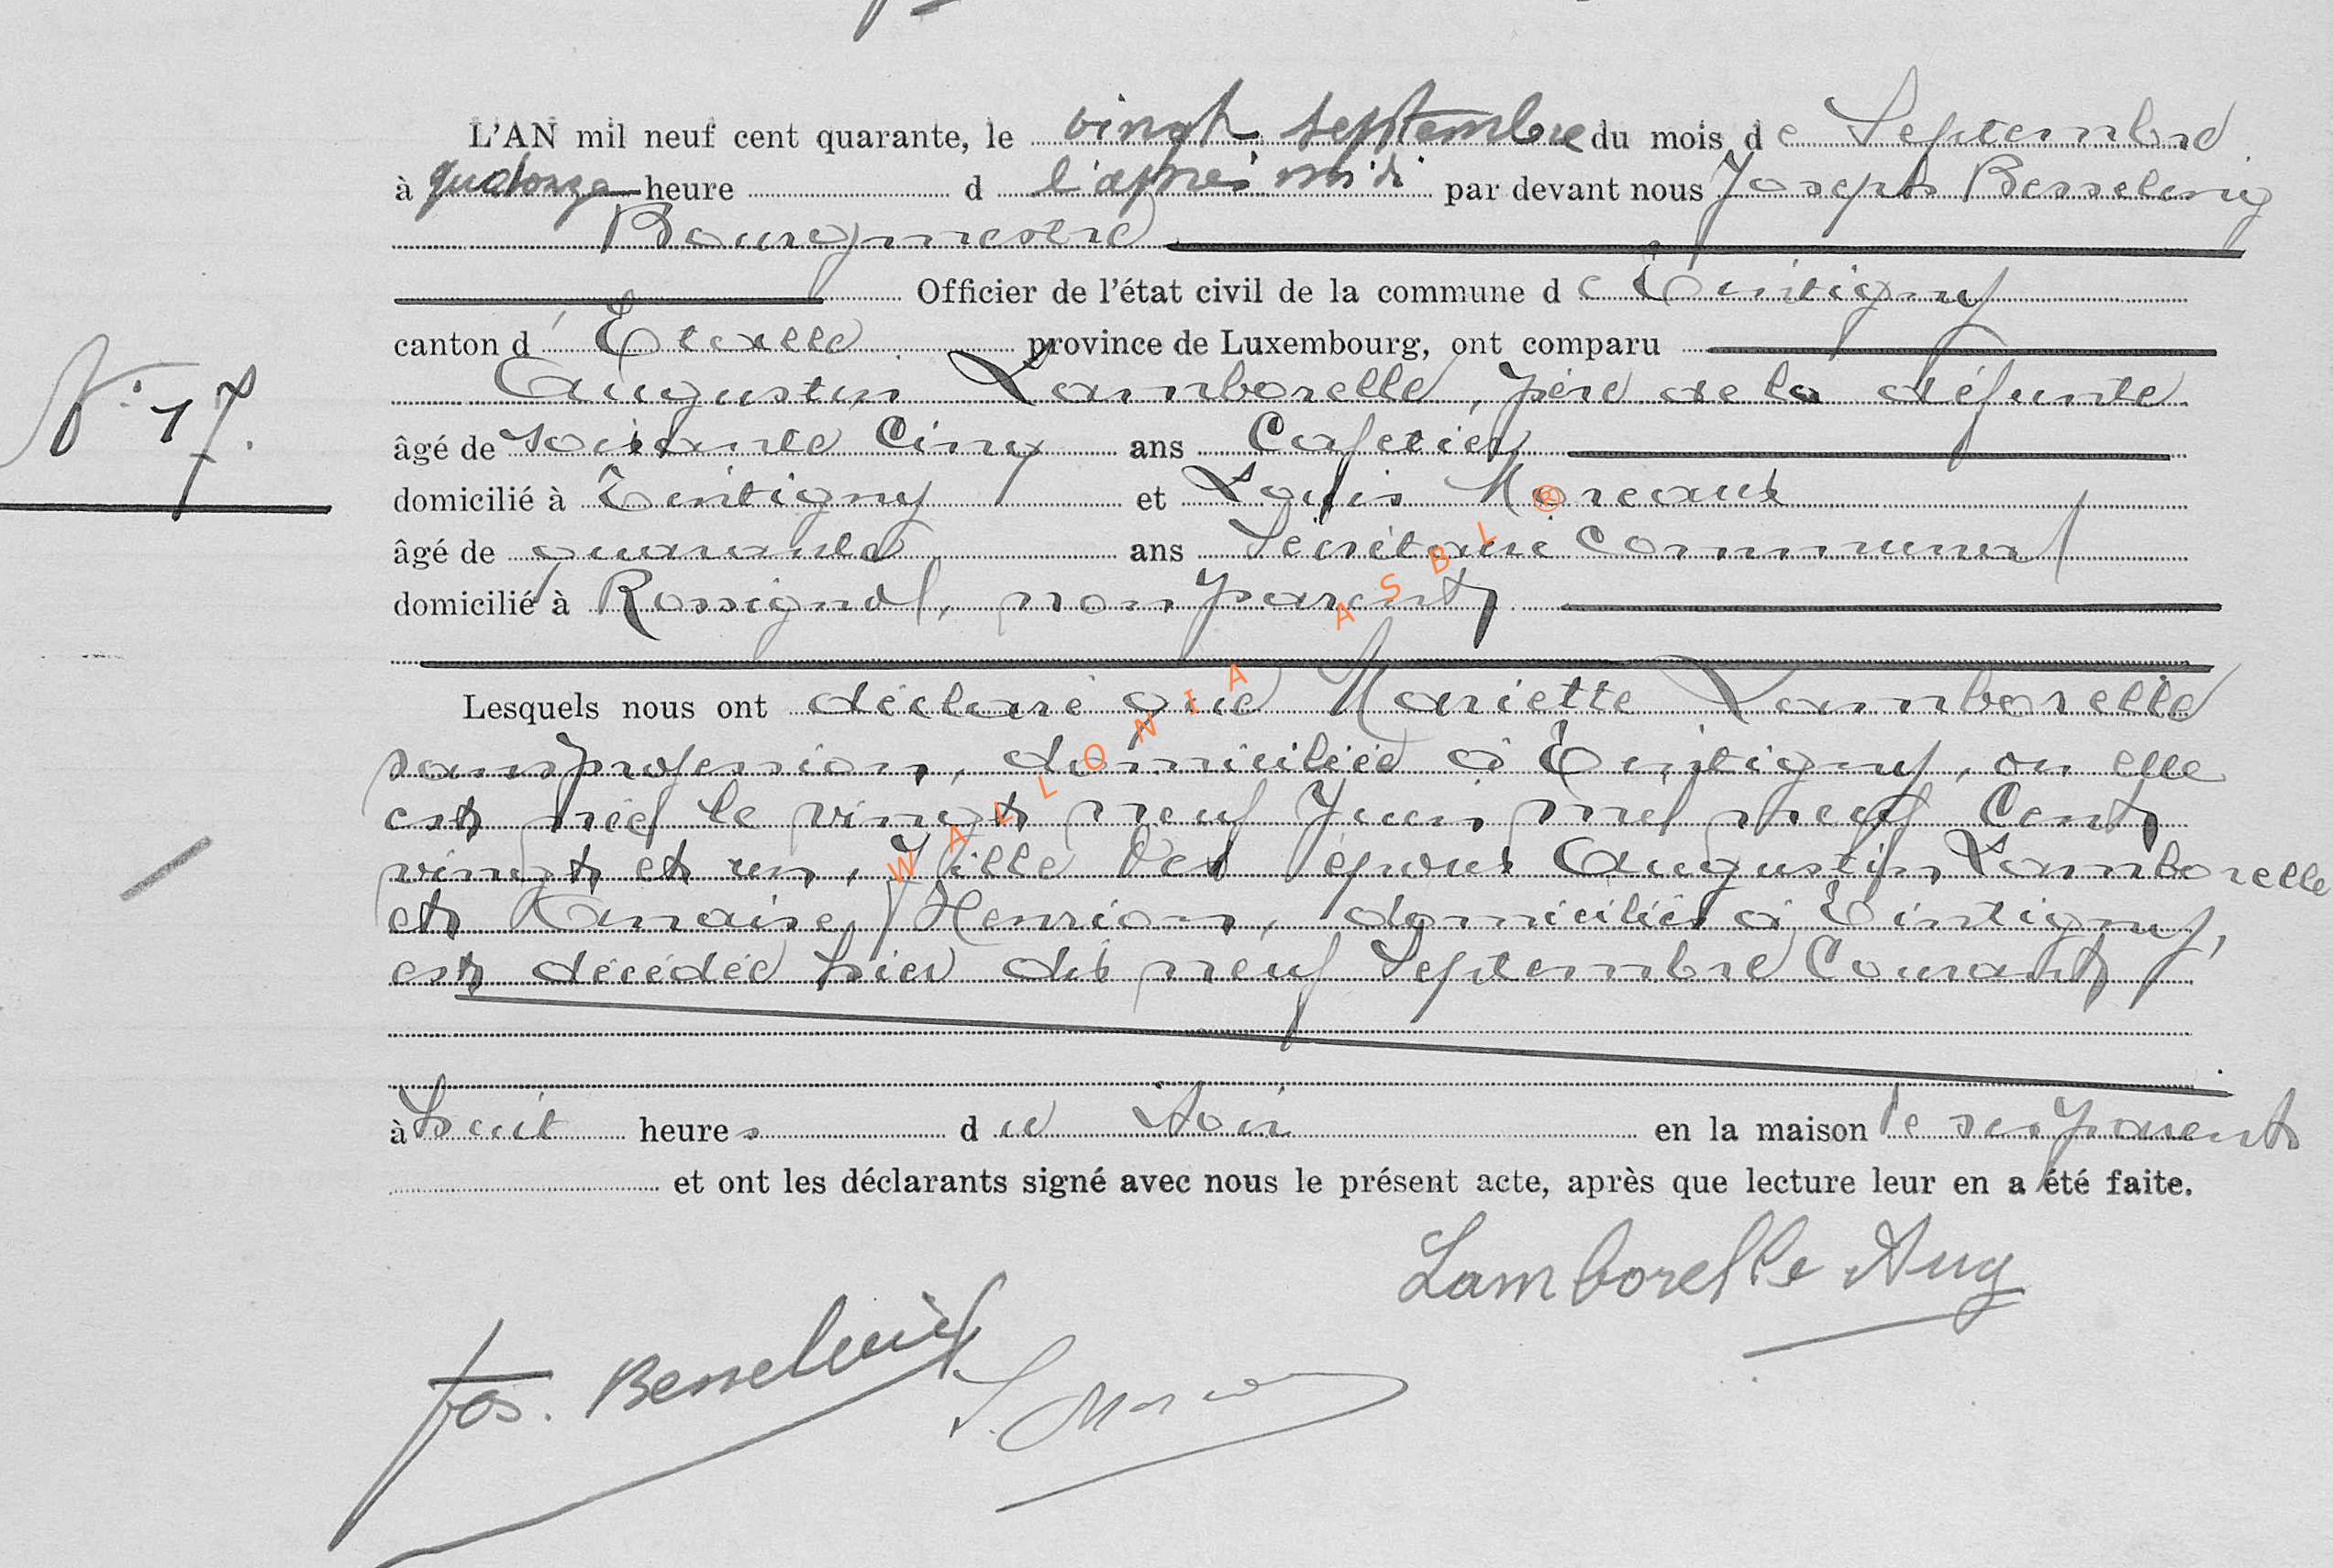 L'AN mil neuf cent quarante, le vingt septembre du mois de Septembre
à quatorze heure d l'après midi par devant nous Joseph Besseling
Bourgmestre
Officier de l'état civil de la commune de Tintigny
canton d'Etalle province de Luxembourg, ont comparu
Augustin Lamborelle, père de la défunte
N° 17.
âgé de soixante Cinq ans Cafetier
domicilié à Tintigny et Louis Moreaux
âgé de quarante ans Secrétaire Communal
domicilié à Rossignol, non parent
Lesquels nous ont déclaré que Mariette Lamborelle
sans profession, domiciliée à Tintigny, ou elle
est née le vingt neuf Juin mil neuf Cent
vingt et un, Fille des époux Augustin Lamborelle
et Anaise Henrion, domiciliés à Tintigny,
est décédée hier dix neuf Septembre Courant
à huit heures du Soir en la maison de ses parents
et ont les déclarants signé avec nous le présent acte, après que lecture leur en a été faite.
Lamborelle Aug
Jos. Besseling
WALLONIA ASBL ®